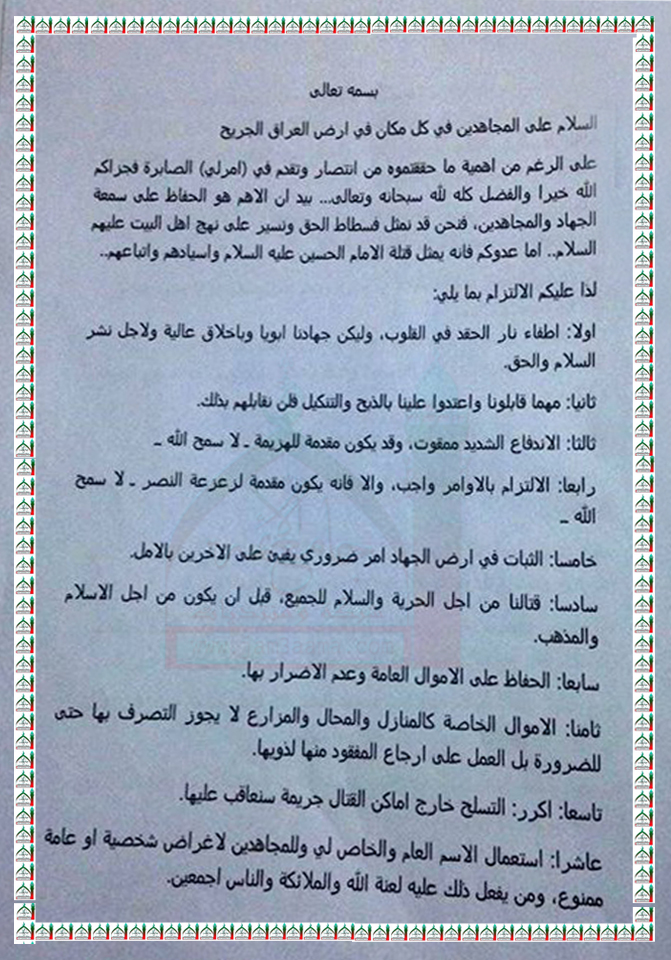 بسمه تعالى
السلام على المجاهدين في كل مكان في ارض العراق الجريح
على الرغم من اهمية ما حققتموه من انتصار وتقدم في (امرلي) الصابرة فجزاكم
الله خيرا والفضل كله لله سبحانه وتعالى... بيد ان الاهم هو الحفاظ على سمعة
الجهاد والمجاهدين، فنحن قد نمثل فسطاط الحق ونسير على نهج اهل البيت عليهم
السلام.. اما عدوكم فانه يمثل قتلة الامام الحسين عليه السلام واسيادهم واتباعهم..
لذا عليكم الالتزام بما يلي:
اولا: اطفاء نار الحقد في القلوب، وليكن جهادنا ابويا وباخلاق عالية ولاجل نشر
السلام والحق.
ثانيا: مهما قابلونا واعتدوا علينا بالذبح والتنكيل فلن نقابلهم بذلك.
ثالثا: الاندفاع الشديد ممقوت، وقد يكون مقدمة للهزيمة ـ لا سمح الله ـ
رابعا: الالتزام بالاوامر واجب، والا فانه يكون مقدمة لزعزعة النصر ـ لا سمح
الله ـ
خامسا: الثبات في ارض الجهاد امر ضروري يفيئ على الاخرين بالامل.
سادسا: قتالنا من اجل الحرية والسلام للجميع، قبل ان يكون من اجل الاسلام
والمذهب.
سابعا: الحفاظ على الاموال العامة وعدم الاضرار بها.
ثامنا: الاموال الخاصة كالمنازل والمحال والمزارع لا يجوز التصرف بها حتى
للضرورة بل العمل على ارجاع المفقود منها لذويها.
تاسعا: اكرر: التسلح خارج اماكن القتال جريمة سنعاقب عليها.
عاشرا: استعمال الاسم العام والخاص لي وللمجاهدين لاغراض شخصية او عامة
ممنوع، ومن يفعل ذلك عليه لعنة الله والملائكة والناس اجمعين.